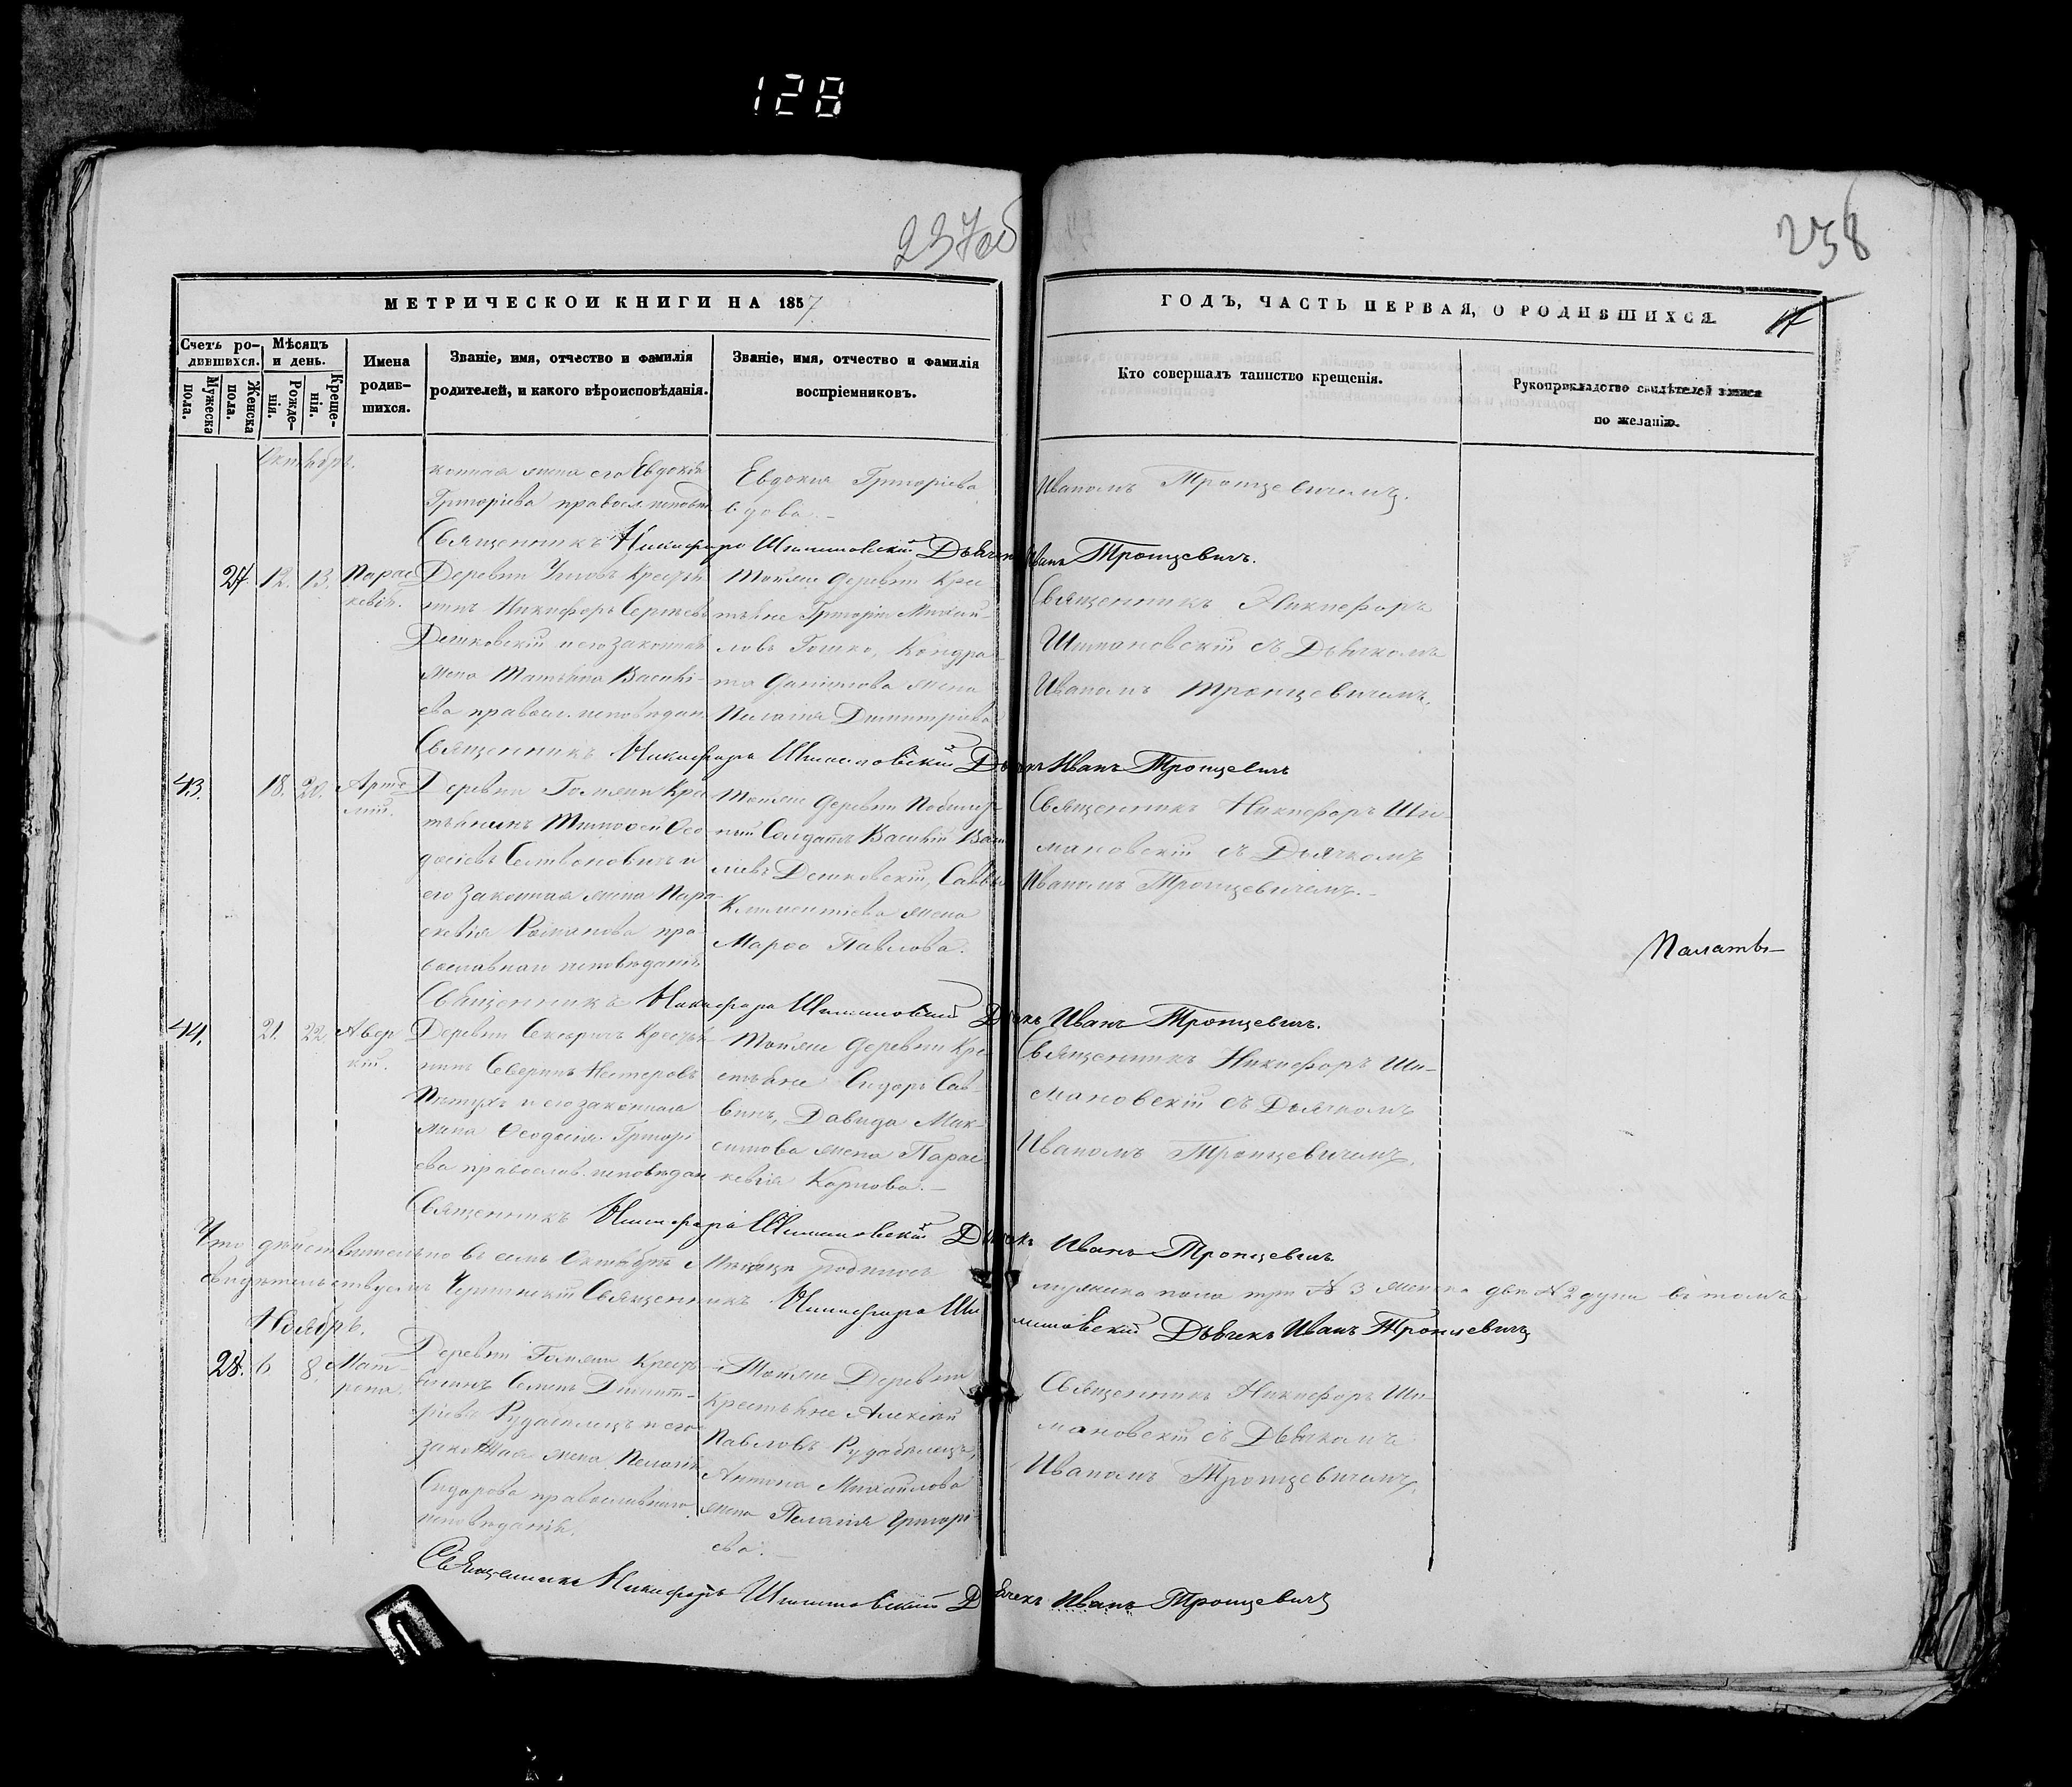 128
237об
238
МЕТРИЧЕСКОЙ КНИГИ НА 1857
Счетъ ро-
дившихся.
Мѣсяцъ
и день.
Мужеска
пола.
Женска
пола.
Рожде-
нія.
Креще-
нія.
Имена
родив-
шихся.
Званіе, имя, отчество и фамилія
родителей, и какого вѣроисповѣданія.
Званіе, имя, отчество и фамилія
воспріемниковъ.
ГОДЪ, ЧАСТЬ ПЕРВАЯ, О РОДИВШИХСЯ.
17
Кто совершалъ таинство крещенія.
Рукоприкладство свидѣтелей записи
по желанію.
Октябрь.
конная жена его Евдокія
Григоріева правосл. исповѣд
Евдокія Григоріева
вдова.
Иваномъ Тронцевичемъ.
Священникъ Никифоръ Шимановскій Дьячекъ Иванъ Тронцевичъ.
27. 12. 13. Парас
кевія.
Деревни Крестья
нинъ Никифоръ Сергѣевъ
Дешковскій и его законная
жена Татьяна Василі-
ева правосл. исповѣдан.
Тойже деревни Крес
тьяне Григорій Михай-
ловъ Гошко, Кондра-
та Данилова жена
Пелагія Димитріева
Священникъ Никифоръ
Шимановскій съ Дьячкомъ
Иваномъ Тронцевичемъ.
Священникъ Никифоръ Шимановскій Дьячекъ Иванъ Тронцевичъ
43. 18. 20. Арте
мій.
Деревни Крес
тьянинъ Тимофей Ѳео
досіевъ и
его законная жена Пара-
скевія Романова пра
вославнаго исповѣданія
Тойже деревни
Солдатъ Василій Васи
Дешковскій, Саввы
Климентіева жена
Марѳа Павлова.
Священникъ Никифоръ Ши
мановскій съ Дьячкомъ
Иваномъ Тронцевичемъ.
Палаты
Священникъ Никифоръ Шимановскій Дьячекъ Иванъ Тронцевичъ.
44. 21. 22. Авер
кій.
Деревни Секеричъ Крестья
нинъ Северинъ Нестеровъ
Пѣтухъ и его законная
жена Ѳеодосія Григорі
ева православ. исповѣдан
Тойже деревни Кре
стьяне Сидоръ Сав-
винъ, Давида Мак-
симова жена Парас
кевія Карпова.
Священникъ Никифоръ Ши-
мановскій съ Дьячкомъ
Иваномъ Тронцевичемъ.
Священникъ Никифоръ Шимановскій Дьячекъ Иванъ Тронцевичъ.
Что дѣйствительно въ семъ Октябрѣ Мѣсяцѣ родилось мужеска пола три № 3 женска двѣ № 2 души въ томъ
свидѣтельствуемъ Священникъ Никифоръ Шимановскій Дьячекъ Иванъ Тронцевичъ
Ноябрь.
28. 6 8. Мат-
рона.
Деревни Крестья
нинъ Семенъ Димит-
ріевъ Рудабелецъ и его
законная жена Пелагія
Сидорова православнаго
исповѣданія.
Тойже Деревни
Крестьяне Алексѣй
Павловъ Рудабелецъ,
Антона Михайлова
жена Пелагія Григорі
ева.
Священникъ Никифоръ Ши
мановскій съ Дьячкомъ
Иваномъ Тронцевичемъ.
Священникъ Никифоръ Шимановскій Дьячекъ Иванъ Тронцевичъ